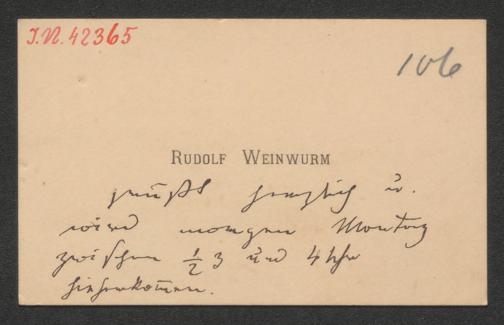 I.N. 42365
106
RUDOLF WEINWURM
grüßt herzlich u.
wird morgen Montag
zwischen ½ 3 und 4 Uhr
hieherkommen.